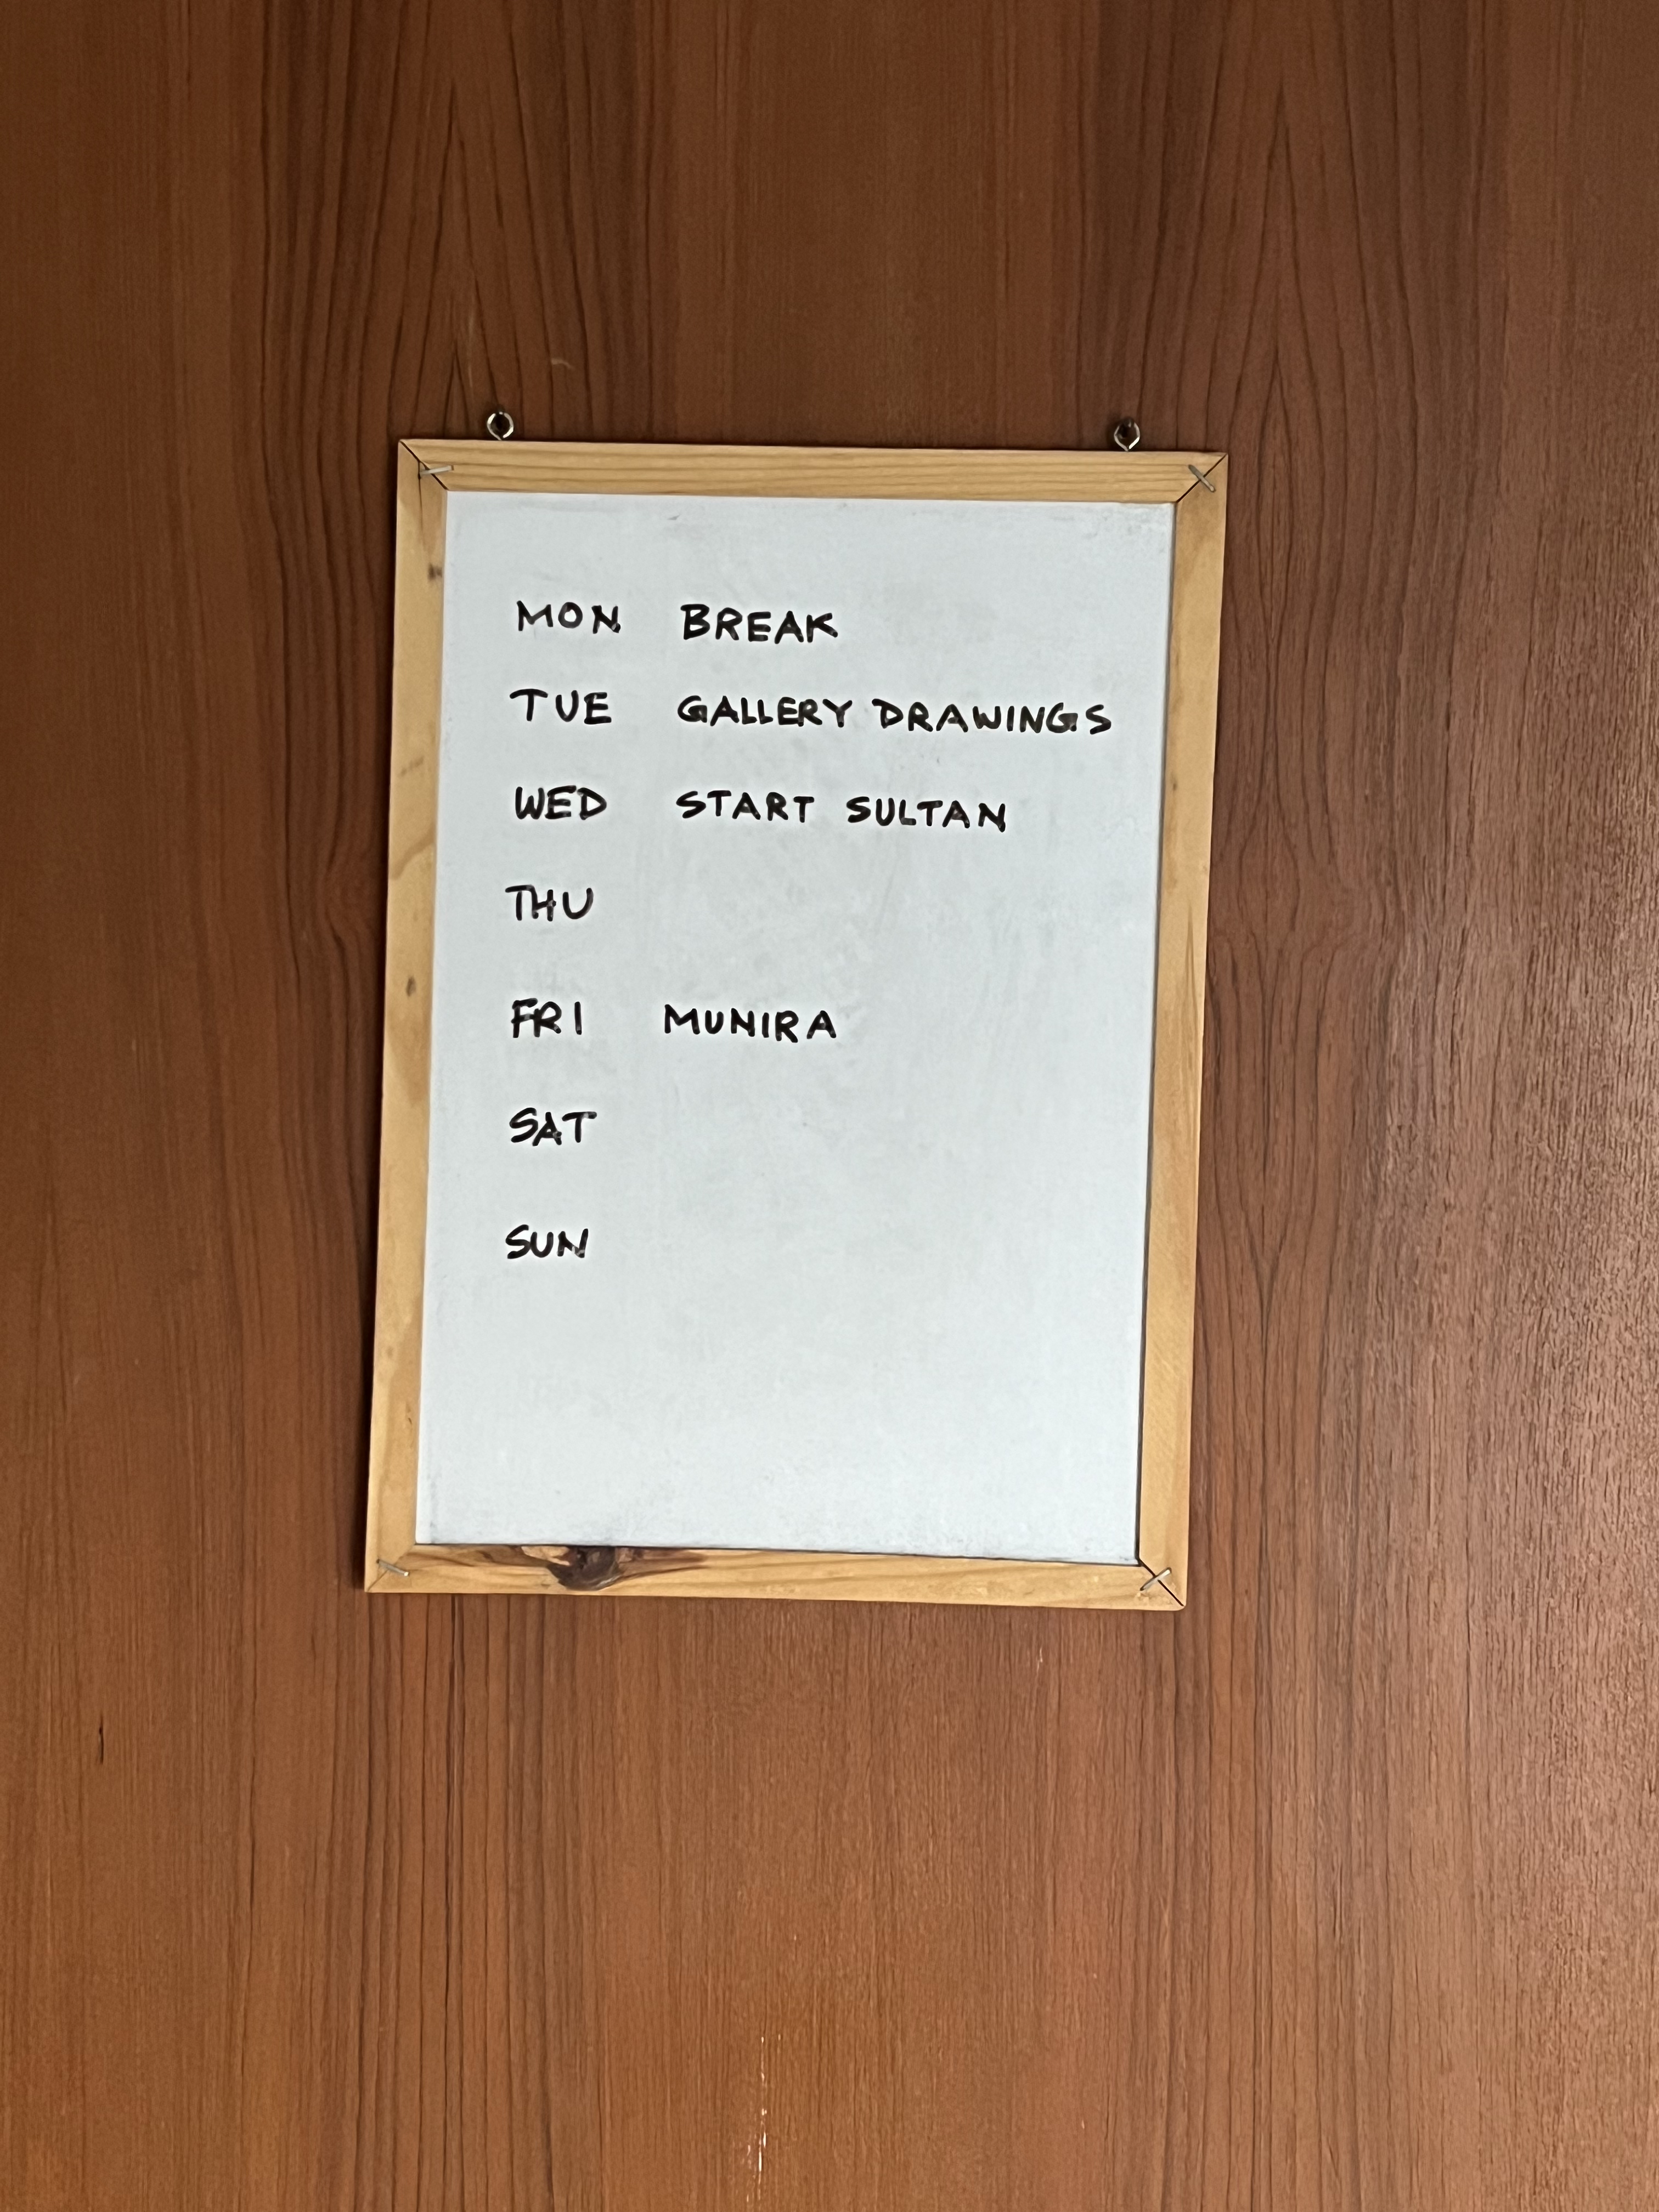 MON BREAK
TUE GALLERY DRAWINGS
WED START SULTAN
THU
FRI MUNIRA
SAT
SUN